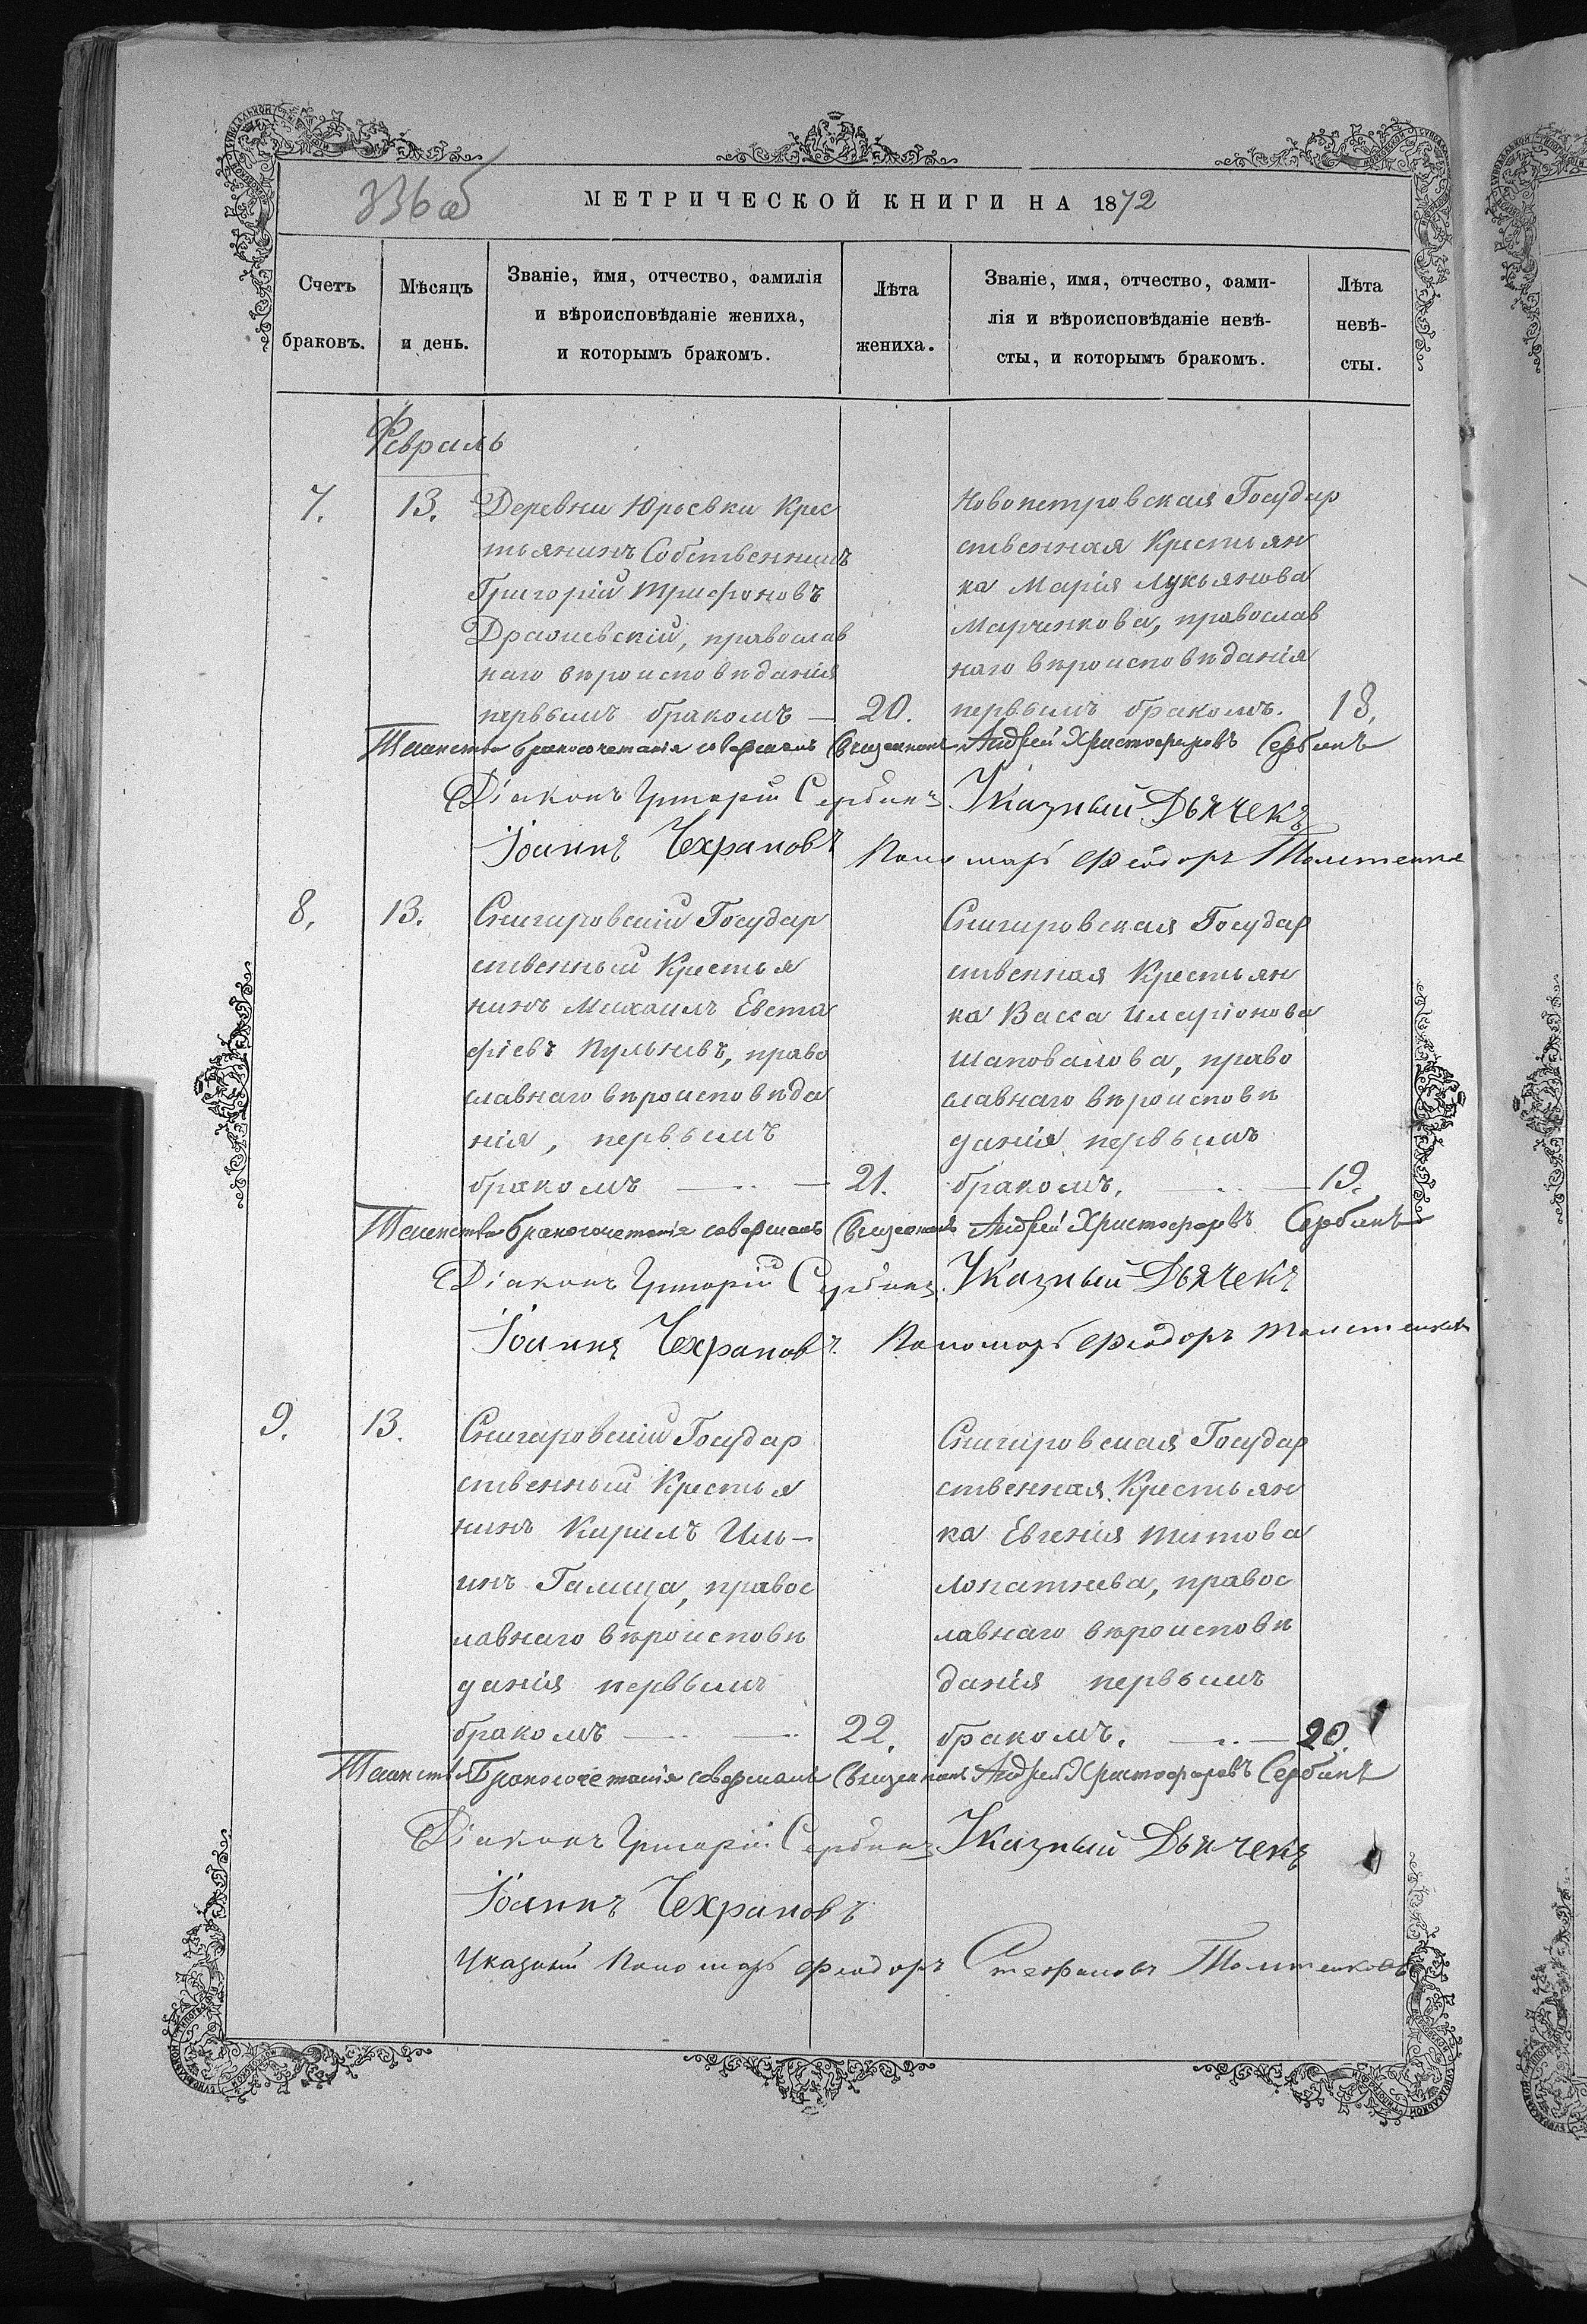 336об
МЕТРИЧЕСКОЙ КНИГИ НА 1872
Счетъ браковъ.
Мѣсяцъ и день.
Званіе, имя, отчество, фамилія
и вѣроисповѣданіе жениха,
и которымъ бракомъ.
Лѣта жениха.
Званіе, имя, отчество, фами-
лія и вѣроисповѣданіе невѣ-
сты, и которымъ бракомъ.
Лѣта невѣ-
сты.
Февраль
7. 13.
Деревни Юрьевки Крес
тьянинъ Собственникъ
Григорій Трифоновъ
православ
наго вѣроисповѣданія
первымъ бракомъ — 20.
Новопетровская Государ
ственная Крестьян
ка Марія Лукьянова
Марченкова, православ
наго вѣроисповѣданія
первымъ бракомъ. 18.
Таинство бракосочетанія совершалъ Священникъ Андрей Христофоровъ Сербинъ
Діаконъ Григорій Сербинъ. Указный Дьячекъ
Іоаннъ Чехрановъ Пономарь Феодоръ
8. 13.
Снигировскій Государ
ственный Крестья
нинъ Михаилъ Евста
фіевъ право
славнаго вѣроисповѣда
нія, первымъ
бракомъ — 21.
Снигировская Государ
ственная Крестьян
ка Васса Иларіонова
Шаповалова, право
славнаго вѣроисповѣ
данія первымъ
бракомъ. — 19.
Таинство бракосочетанія совершалъ Священникъ Андрей Христофоровъ Сербинъ
Діаконъ Григорій Сербинъ. Указный Дьячекъ
Іоаннъ Чехрановъ. Пономарь Феодоръ
9. 13.
Снигировскій Государ
ственный Крестья
нинъ Кирилъ Иль-
инъ Галица, правос
лавнаго вѣроисповѣ
данія первымъ
бракомъ — 22.
Снигировская Государ
ственная Крестьян
ка Евгенія Титова
Лопатнева, правос
лавнаго вѣроисповѣ
данія первымъ
бракомъ. — 20.
Таинство Бракосочетанія совершалъ Священникъ Андрей Христофоровъ Сербинъ
Діаконъ Григорій Сербинъ Указный Дьячекъ
Іоаннъ Чехрановъ
Указный Пономарь Феодоръ Стефановъ